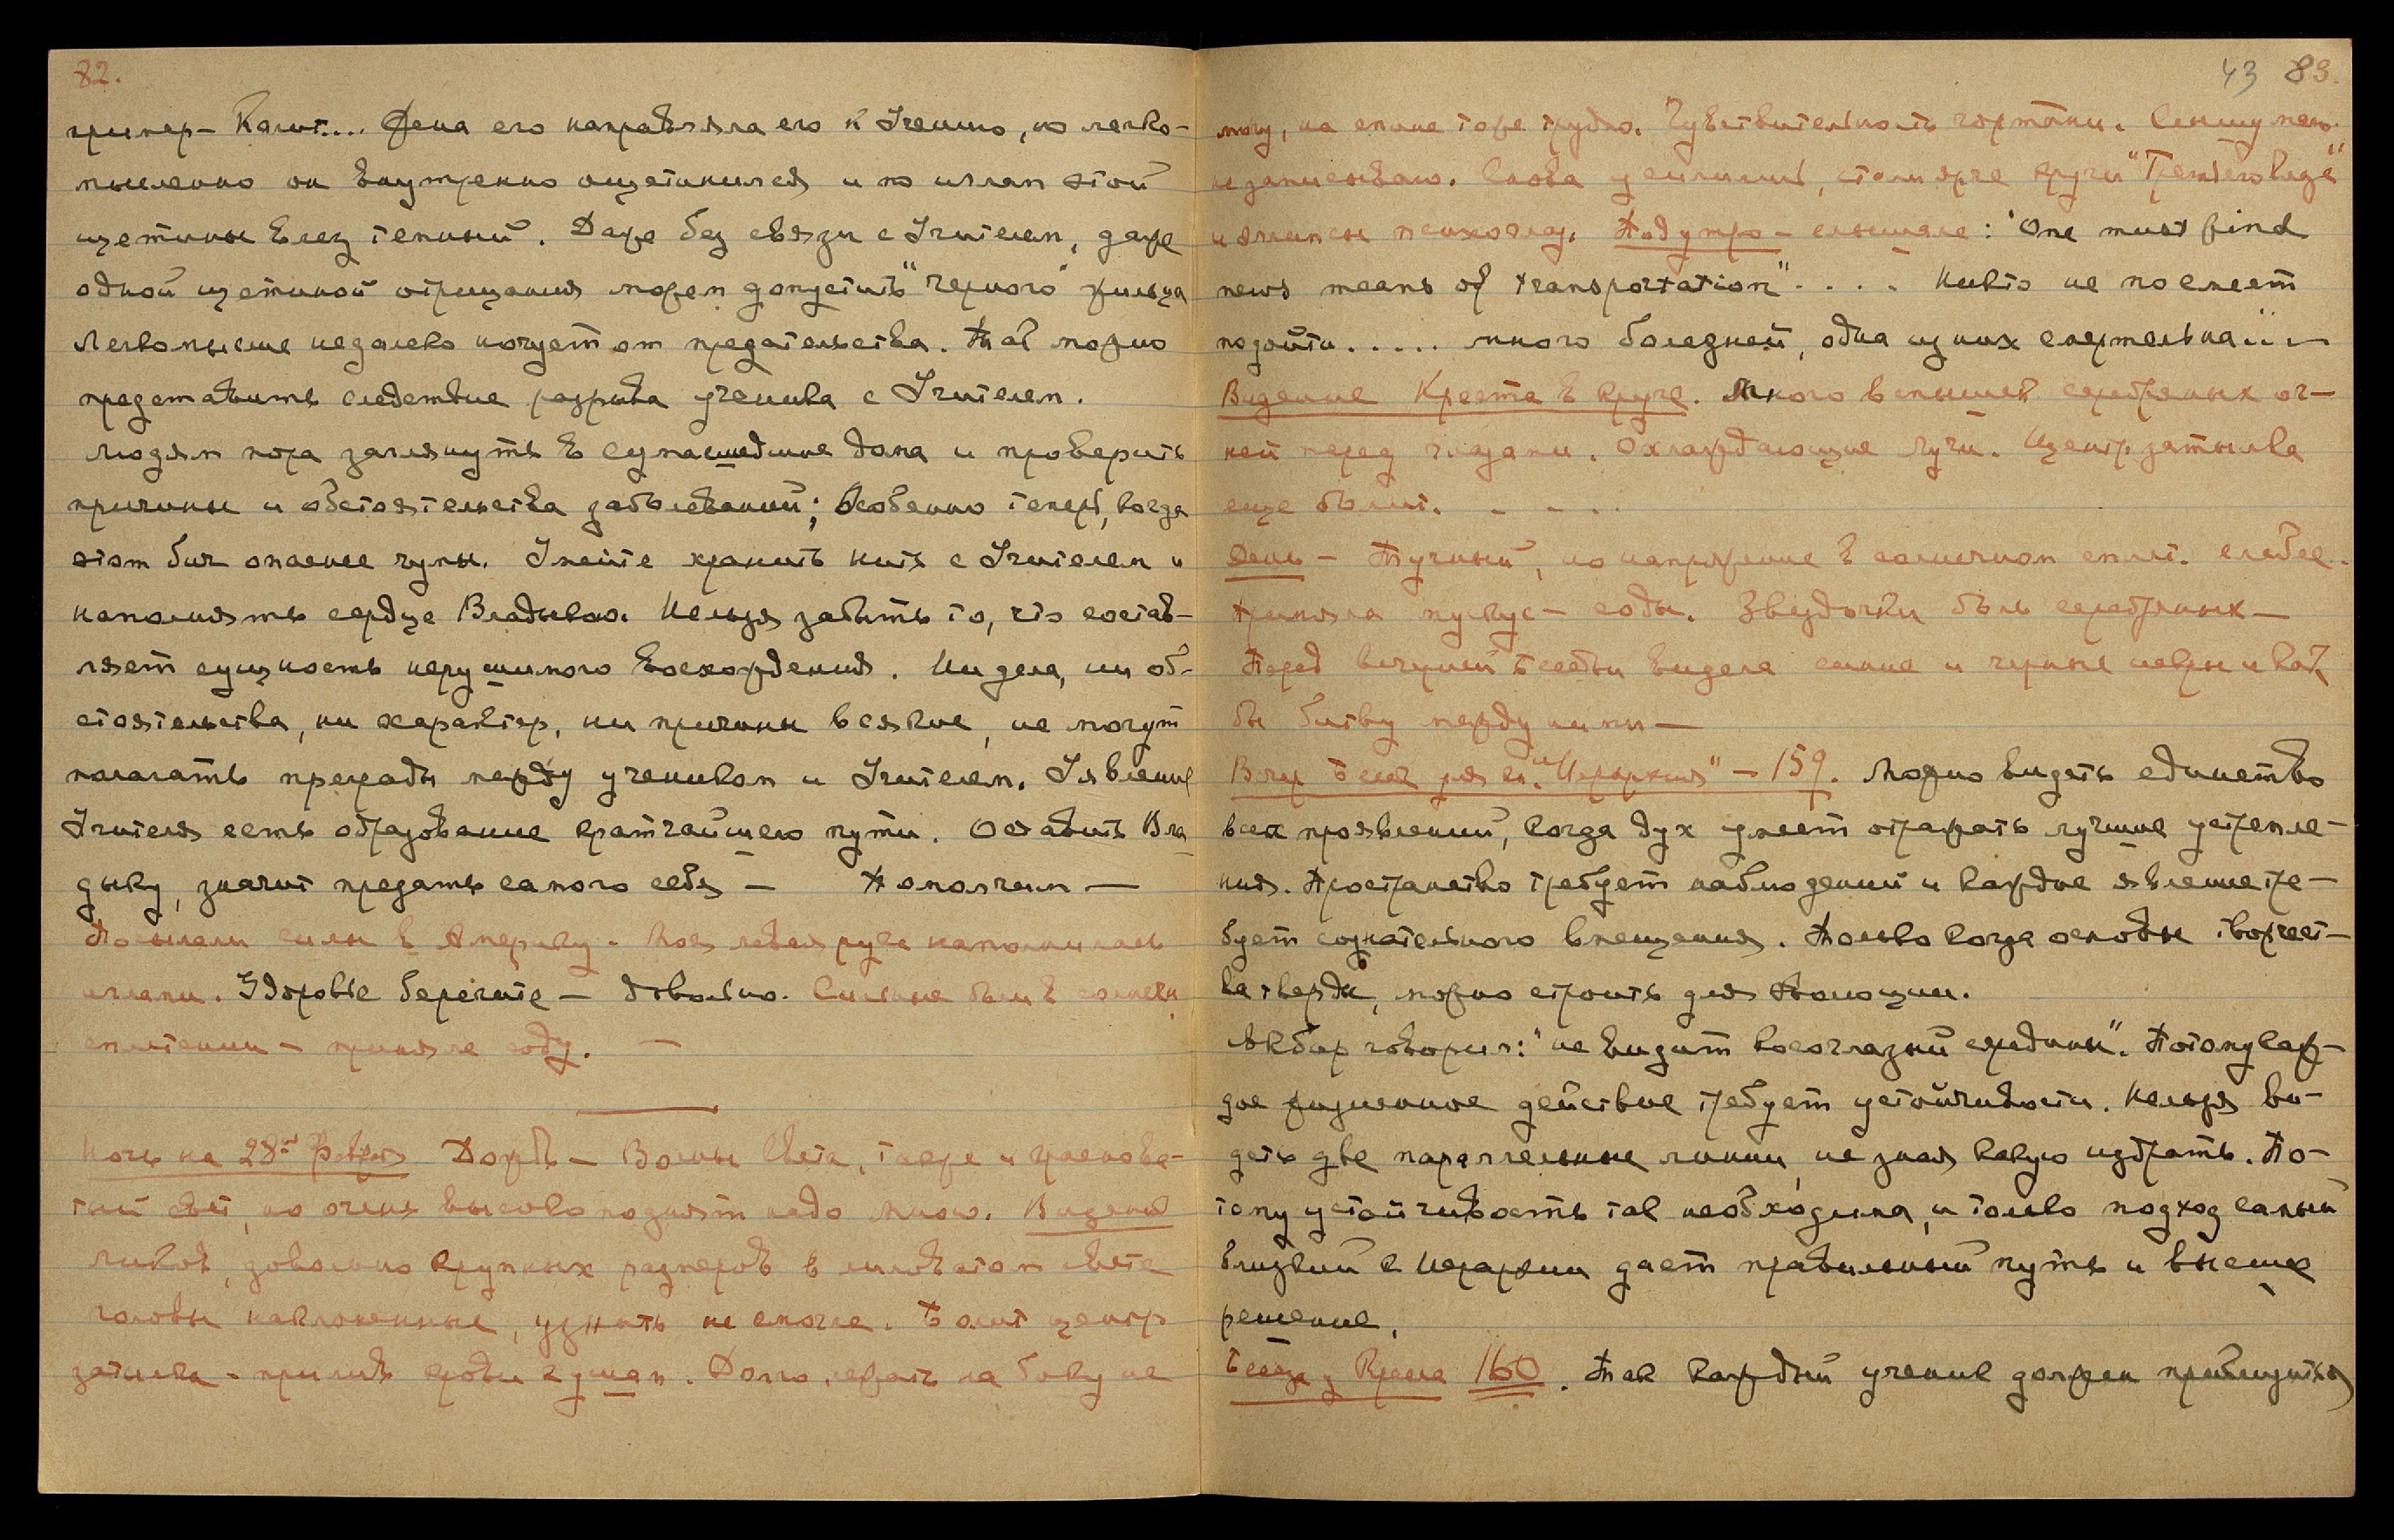 82.
пример – Калит.... Жена его направляла его к Учению, но легко-
мысленно он внутренно ощетинился и по иглам этой
щетины влез темный. Даже без связи с Учителем, даже
одной щетиной отрицания можем допустить "черного" жильца
Легкомыслие недалеко ночует от предательства. Так можно
представить следствие разрыва ученика с Учителем.
Людям пора заглянуть в сумасшедшие дома и проверить
причины и обстоятельства заболеваний; Особенно теперь, когда
этот бич опаснее чумы. Умейте хранить нить с Учителем и
наполнять сердце Владыкою. Нельзя забыть то, что состав-
ляет сущность нерушимого восхождения. Ни дела, ни об-
стоятельства, ни характер, ни причины всякие, не могут
полагать преграды между учеником и Учителем. Уявление
Учителя есть образование кратчайшего пути. Оставить Вла-
дыку, значит предать самого себя – Помолчим –
Посылали силы в Америку. Моя левая рука наполнилась
иглами. Здоровье берегите – довольно. Сильные боли в солнечн.
сплетении – приняла соду. –
Ночь на 28-ое Февраля Дождь – Волны Света, также и
тый свет, но очень высоко поднят надо мною. Видения
ликов, довольно крупных размеров в лиловатом свете
головы наклоненные, узнать не смогла. Болит центр
затылка – прилив крови к ушам. Долго лежать на боку не
43 83.
могу, на спине тоже трудно. Чувствительность гортани. Слышу
и записываю. Снова усилились, стали ярче круги "Третьего глаза"
и эллипсы психоглаз. Под утро – слышала: "One must find
news means of transportation" . . . . Никто не посмеет
подойти..... много болезней, одна из них смертельна... –
Видение Креста в круге. Много вспышек серебряных ог-
ней перед глазами. Охлаждающие лучи. Центр затылка
еще болит. – – . .
День – Тучный, но напряжение в солнечном сплет. слабее.
Приняла мускус – соды. Звездочки серебряные –
Перед вечерней беседы видела синие и черные искры и как
бы битву между ними –
Вечер Бесед для кн. "Иерархия" – 159. Можно видеть единство
всех проявлений, когда дух умеет отражать лучшие устремле-
ния. Пространство требует наблюдений и каждое явление тре-
бует сознательного вмещения. Только когда основы творчест-
ва тверды, можно строить для Эволюции.
Акбар говорил: "не видит косоглазый середины". Потому каж-
дое жизненное действие требует устойчивости. Нельзя ви-
деть две параллельные линии, не зная какую избрать. По-
тому устойчивость так необходима, и только подход самый
близкий к Иерархии дает правильный путь и высшее
решение.
160. Так каждый ученик должен приобщиться